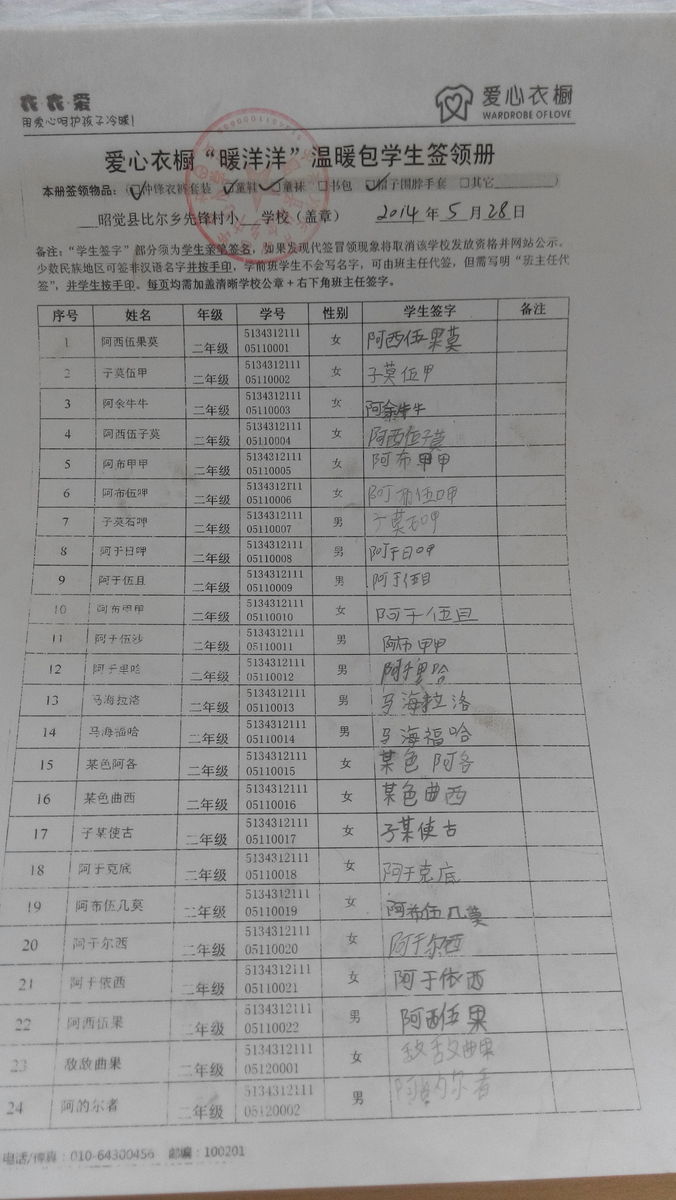 衣衣爱
用爱心呵护孩子冷暖!
爱心衣橱
WARDROBE OF LOVE
爱心衣橱“暖洋洋”温暖包学生签领册
本册签领物品：（☑冲锋衣裤套装 ☑童鞋 ☑童袜 □书包 ☑帽子围脖手套 □其它__________）
___昭觉县比尔乡先锋村小___学校（盖章） 2014年5月28日
备注：“学生签字”部分须为学生亲笔签名，如果发现代签冒领现象将取消该学校发放资格并网站公示。
少数民族地区可签非汉语名字并按手印，学前班学生不会写名字，可由班主任代签，但需写明“班主任代
签”，并学生按手印。每页均需加盖清晰学校公章+右下角班主任签字。
序号 姓名 年级 学号 性别 学生签字 备注
1 阿西伍果莫 二年级 513431211105110001 女 阿西伍果莫
2 子莫伍甲 二年级 513431211105110002 女 子莫伍甲
3 阿余牛牛 二年级 513431211105110003 女 阿余牛牛
4 阿西伍子莫 二年级 513431211105110004 女 阿西伍子莫
5 阿布甲甲 二年级 513431211105110005 女 阿布甲甲
6 阿布伍呷 二年级 513431211105110006 女 阿布伍呷
7 子莫石呷 二年级 513431211105110007 男 子莫石呷
8 阿于日呷 二年级 513431211105110008 男 阿于日呷
9 阿于伍且 二年级 513431211105110009 男 阿于伍且
10 阿布甲甲 二年级 513431211105110010 女 阿于伍且
11 阿于伍沙 二年级 513431211105110011 男 阿布甲甲
12 阿于里哈 二年级 513431211105110012 男 阿于里哈
13 马海拉洛 二年级 513431211105110013 男 马海拉洛
14 马海福哈 二年级 513431211105110014 男 马海福哈
15 某色阿各 二年级 513431211105110015 女 某色阿各
16 某色曲西 二年级 513431211105110016 女 某色曲西
17 子某使古 二年级 513431211105110017 女 子某使古
18 阿于克底 二年级 513431211105110018 女 阿于克底
19 阿布伍几莫 二年级 513431211105110019 女 阿布伍几莫
20 阿于尔西 二年级 513431211105110020 女 阿于尔西
21 阿于依西 二年级 513431211105110021 女 阿于依西
22 阿西伍果 二年级 513431211105110022 男 阿西伍果
23 敌敌曲果 二年级 513431211105120001 女 敌敌曲果
24 阿的尔者 二年级 513431211105120002 男 阿的尔者
电话/传真：010-64300456 邮编：100201